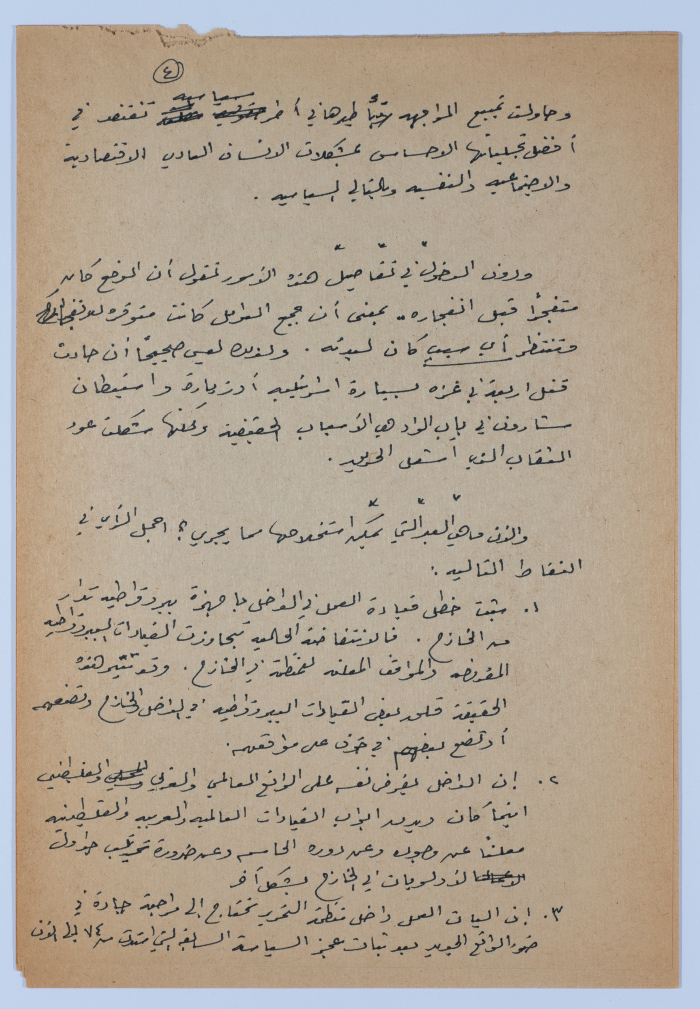 ٤
وحاولت تمييع المواجهه طيدها في أطر سياسيه تفتقد في
أفضل تجلياتها الاحساس بمشكلات الانسان العادي الاقتصادية
والاجتماعيه والنفسيه وبالتالي السياسيه .
ودون الدخول في تفاصيل هذه الأمور لنقول أن الوضع كان
متفجراً قبل انفجاره .. بمعنى أن جميع العوامل كانت متوفره للانفجار
وتنتظر أي سبب كان لبدئه . ولذلك ليس صحيحاً أن حادث
قتل اربعة في غزه بسيارة اسرائيليه أو زيارة واستيطان
شارون في باب الواد هي الأسباب الحقيقية ولكنها شكلت عود
الثقاب الذي أشعل الحريق .
والآن ما هي العبر التي يمكن استخلاصها مما يجري ؟ اجمل الرأي في
النقاط التاليه :
١. ثبت خطل قيادة العمل في الداخل بأجهزة بيروقراطيه تدار
من الخارج . فالانتفاضة الحاليه تجاوزت القيادات البيروقراطيه
المفروضه والمواقف المعلنه للمنظمة في الخارج . وقد تثير هذه
الحقيقة قلق بعض القيادات البيروقراطيه في الداخل والخارج وتضعهم
أو تضع بعضهم في خوف على مواقعهم .
٢. إن الداخل يفرض نفسه على الواقع العالمي والعربي والفلسطيني
اينما كان ويدق ابواب القيادات العالميه والعربيه والفلسطينيه
معلناً عن وجوده وعن دوره الحاسم وعن ضرورة ترتيب جداول
الأولويات في الخارج بشكل آخر
٣. إن آليات العمل داخل منظمة التحرير تحتاج إلى مراجعة جادة في
ضوء الواقع الجديد بعد ثبات عجز السياسة السابقه التي امتدت من ٧٤ إلى الآن